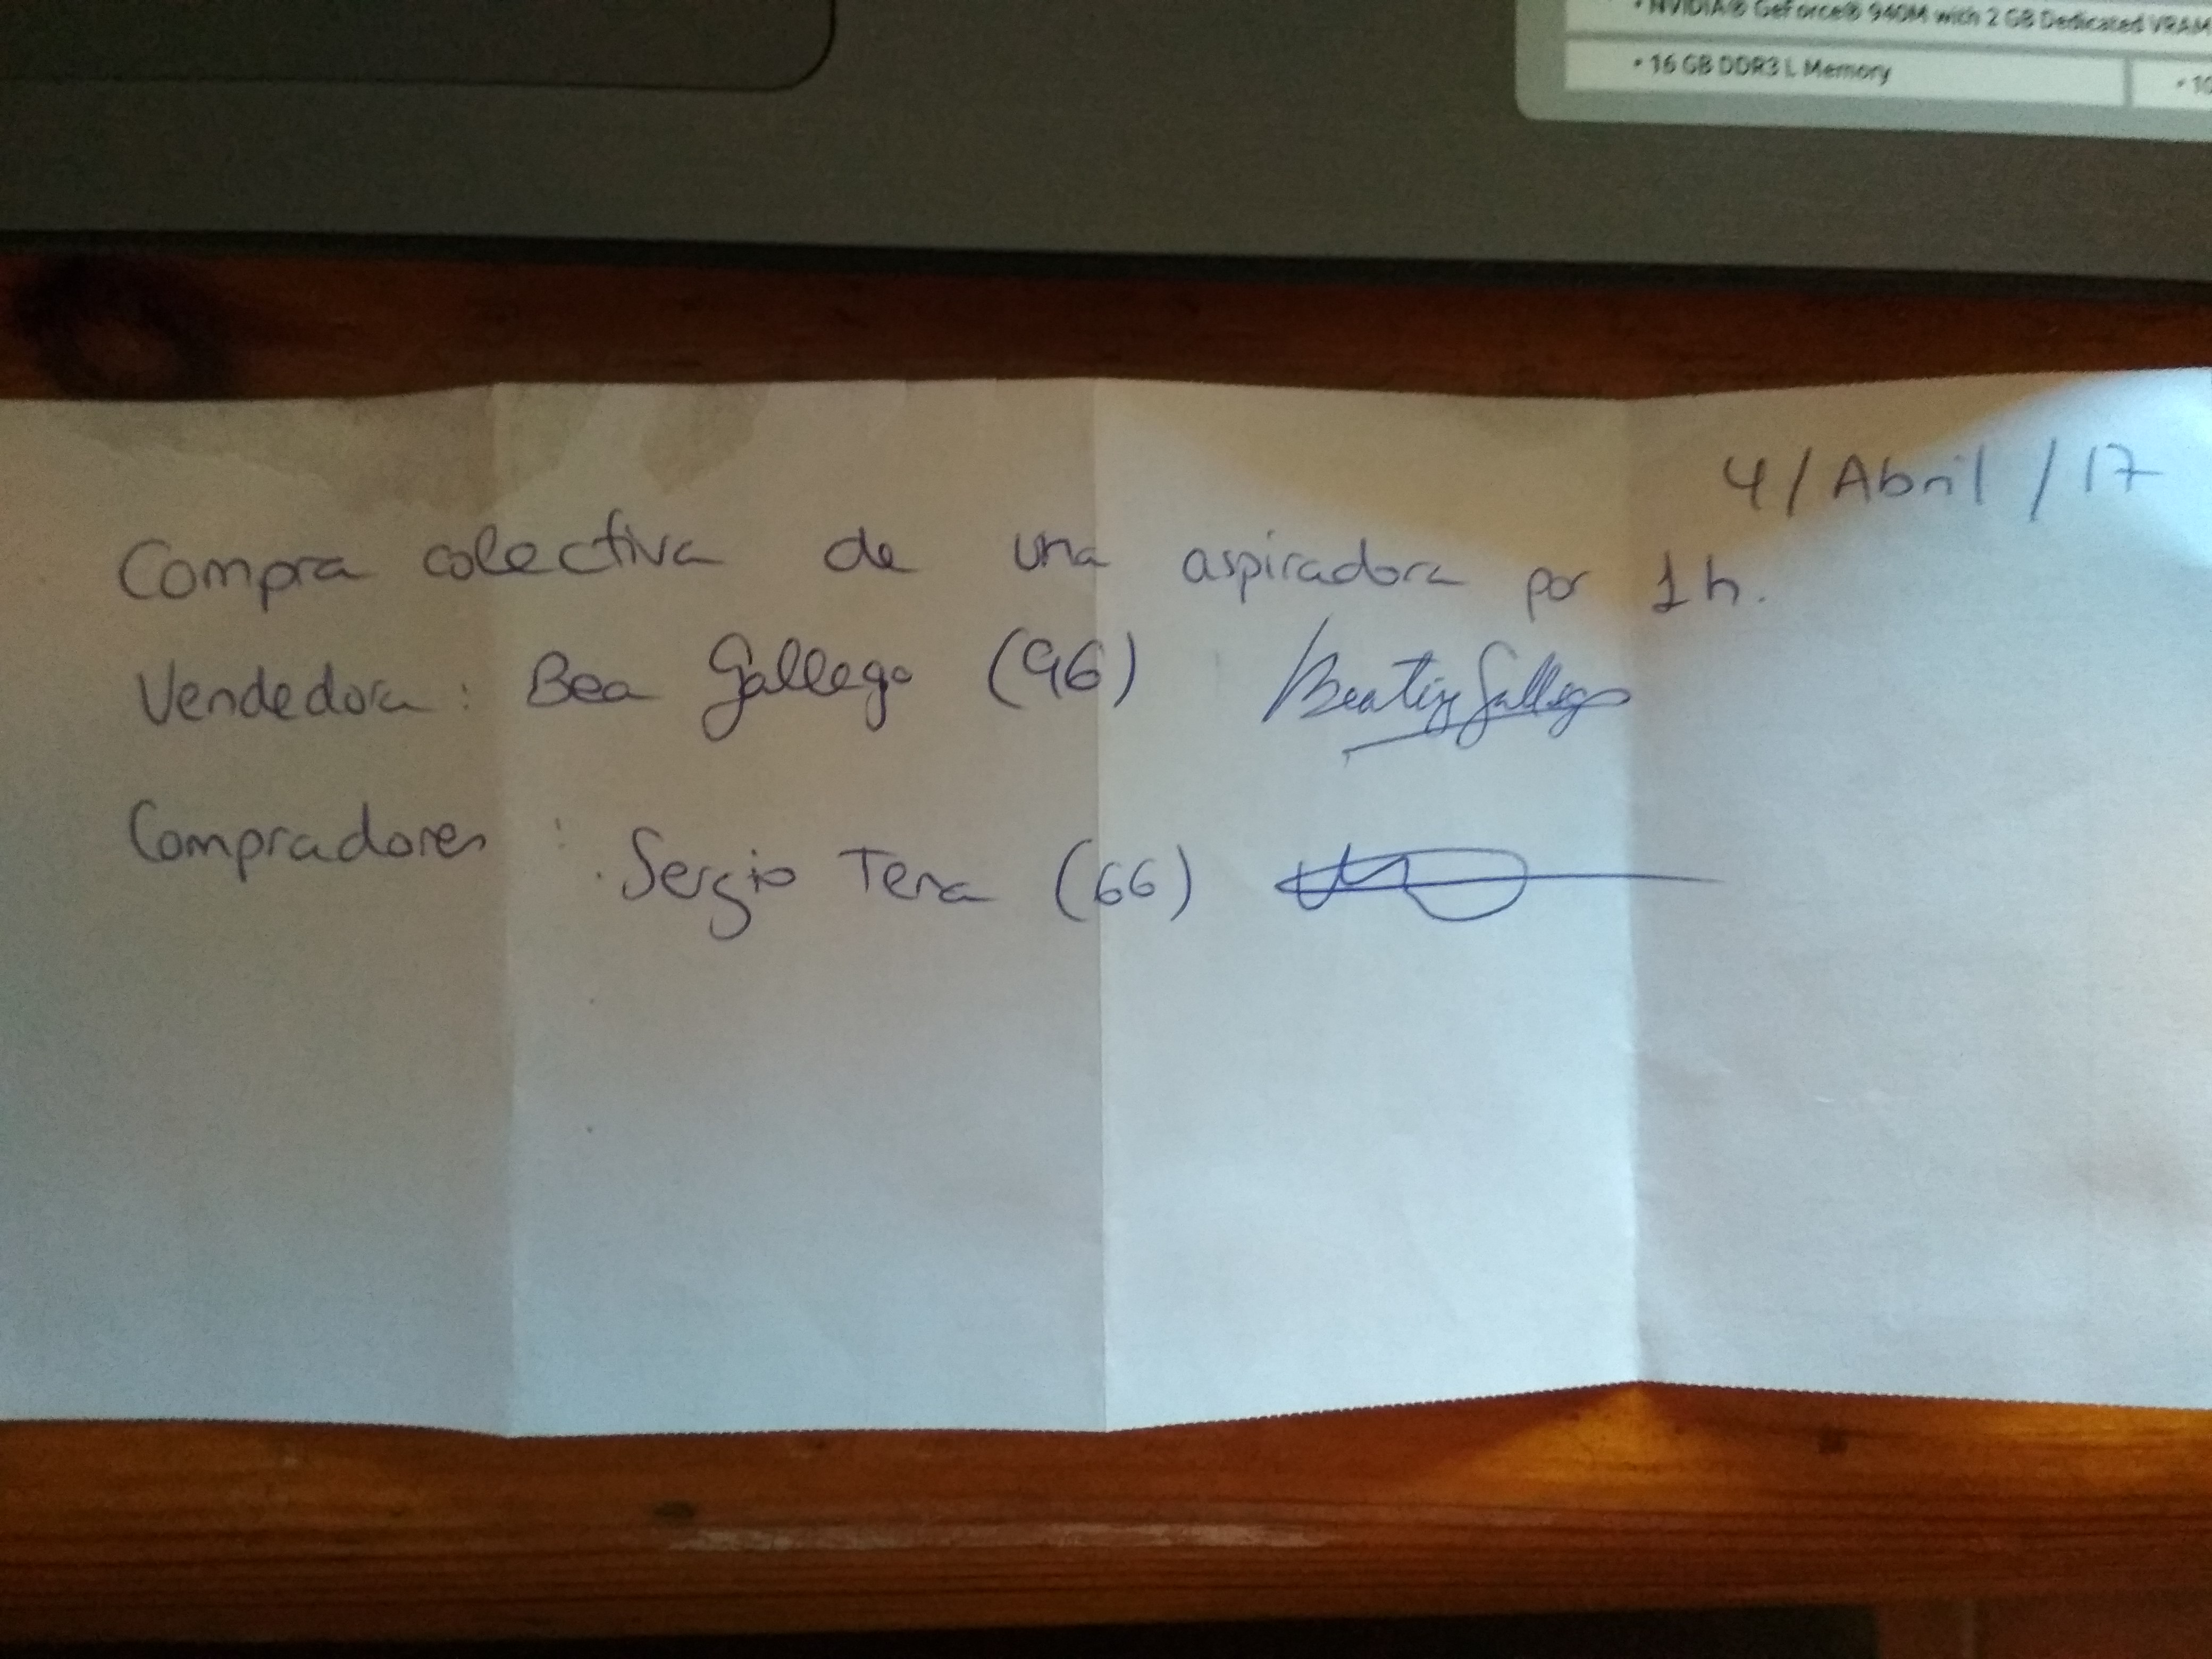 • NVIDIA® GeForce® 940M with 2 GB Dedicated VRAM
• 16 GB DDR3 L Memory
4/Abril/17
Compra colectiva de una aspiradora por 1h.
Vendedora: Bea Gallego (96) Beatriz Gallego
Compradores:
. Sergio Tena (66)